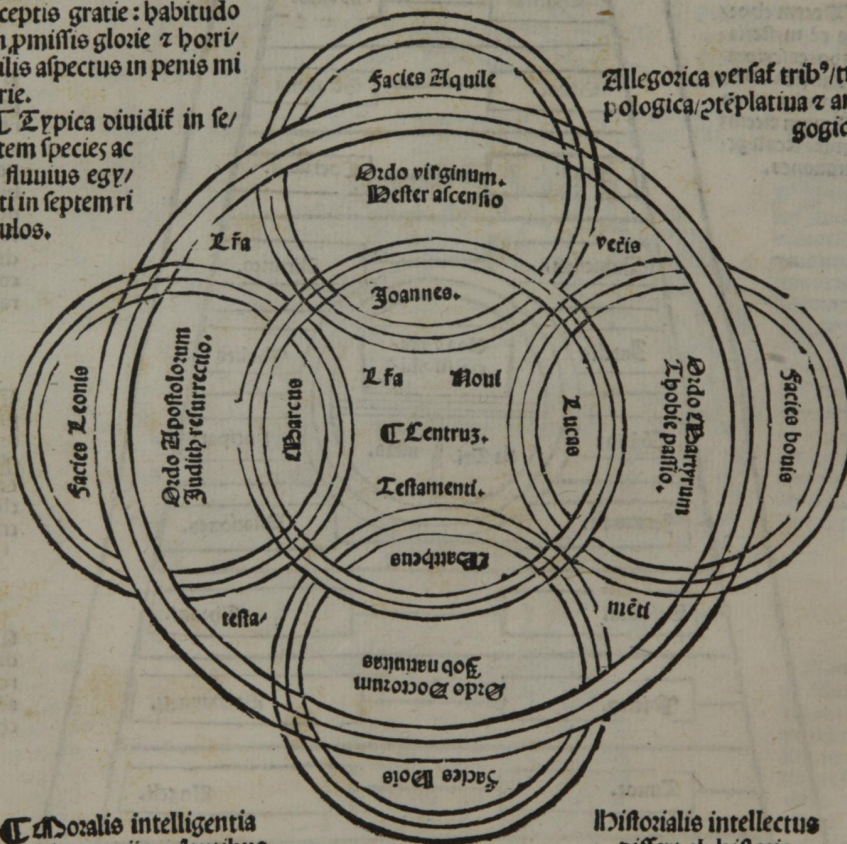 ceptis gratie: habitudo
n ꝓmissis glorie ⁊ horri/
ilis aspectus in penis mi
rie.
¶ Typica diuidit̃ in se/
tem species ac
fluuius egy/
ti in septem ri
ulos.
Allegorica versat̃ tribꝰ/t
pologica/ꝯtẽplatiua ⁊ an
gogic
Facies Aquile
Ordo virginum.
Hester ascensio
Lr̃a
veteris
Joannes.
Facies Leonis
Ordo Apostolorum
Judith resurrectio.
Marcus
Lr̃a Noui
¶ Centruʒ.
Testamenti.
Lucas
Ordo Martyrum
Thobie passio.
Facies bouis
Mattheus
testa/
mẽti
Job natiuitas
Ordo Doctorum
Facies Hois
¶ Moralis intelligentia
Historialis intellectus